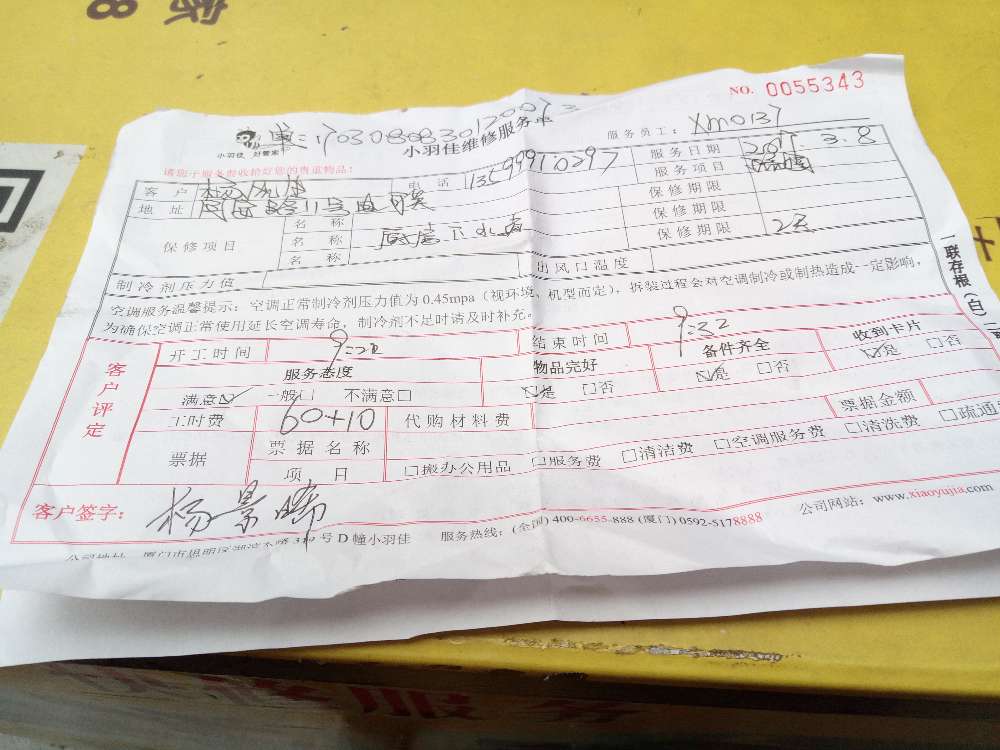 家
8
NO. 0055343
单:1703080830120073
小羽佳 好管家
小羽佳维修服务单
服务员工: XM0137
请您于服务费收拾好您的贵重物品:
客 户
电 话 13599910297
服务日期 2017.3.8
地 址
服务项目
保修期限
保修项目
名 称
保修期限
名 称 厨房下水
保修期限 2天
名 称
制冷剂压力值
出风口温度
空调服务温馨提示:空调正常制冷剂压力值为 0.45mpa(视环境、机型而定),拆装过程会对空调制冷或制热造成一定影响,
为确保空调正常使用延长空调寿命,制冷剂不足时请及时补充。
一联存根(白)
客户评定
开工时间
结束时间 9:32
服务态度
物品完好
备件齐全
收到卡片
满意☑ 一般□ 不满意□
☑是 □否
☑是 □否
☑是 □否
工时费 60+10
代购材料费
票据金额
票据
票 据 名 称
项 目
□搬办公用品 □服务费 □清洁费 □空调服务费 □清洗费 □疏通
客户签字: 杨景晞
公司网站:www.xiaoyujia.com
公司地址 厦门市思明区 号 D 幢小羽佳 服务热线:(全国) 400-6655-888 (厦门) 0592-5178888
快修服务